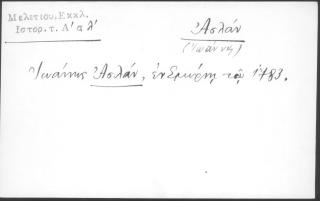 Μελετίου, Εκκλ.
Ἱστορ. τ. Α' α λ'
Ἀσλάν
(Ἰωάννης)
Ἰωάννης Ἀσλάν, ἐν Σμύρνῃ τῷ 1783.